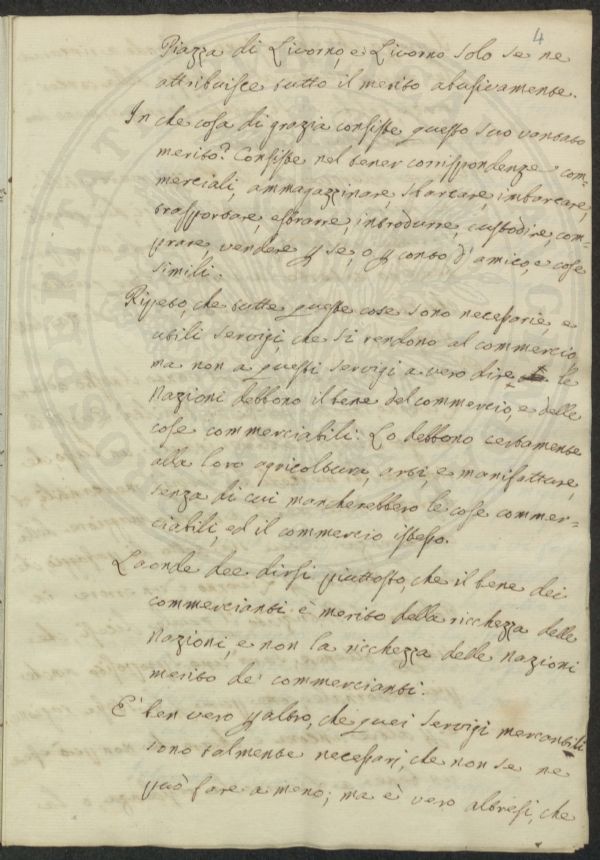 4
Piazza di Livorno, e Livorno solo se ne
attribuisce tutto il merito abusivamente.
In che cosa di grazia consiste questo suo vantato
merito? Consiste nel tener corrispondenze com=
merciali, ammagazzinare, sbarcare, imbarcare,
trasportare, estrarre, introdurre, custodire, com=
prare, vendere p se, o p conto d'amico, e cose
simili.
Ripeto, che tutte queste cose sono necessarie, e
utili servigi, che si rendono al commercio,
ma non a questi servigi a vero dire le
Nazioni debbono il bene del commercio, e delle
cose commerciabili: Lo debbono certamente
alla loro agricoltura, arti, e manifatture,
senza di cui mancherebbero le cose commer=
ciabili, ed il commercio istesso.
Laonde dee dirsi piuttosto, che il bene dei
commercianti è merito della ricchezza delle
Nazioni, e non la ricchezza delle Nazioni
merito de' commercianti.
E' ben vero p altro, che quei servigi mercantili
sono talmente necessarj, che non se ne
può fare a meno; ma è vero altresi, che